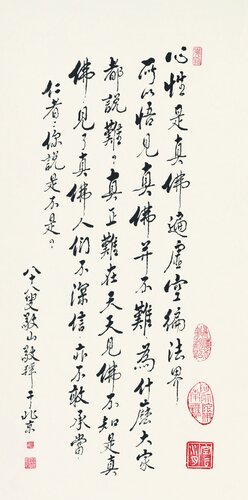 心性是真佛遍虛空徧法界
所以悟見真佛並不難為什麼大家
都說難真正難在天天見佛不知是真
佛見了真佛人們不深信亦不敢承當
仁者你說是不是
八十八叟敬山敬擇于北京